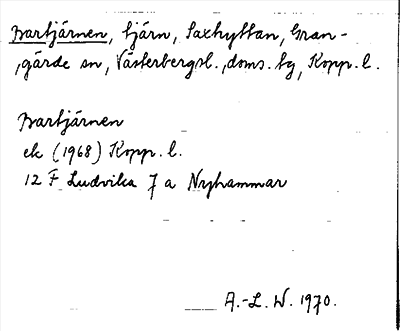 Svartjärnen, tjärn, Saxhyttan, Gran-
gärde sn, Västerbergsl., doms. tg, Kopp. l.
Svartjärnen
ek (1968) Kopp. l.
12 F Ludvika 7 a Nyhammar
A.-L. W. 1970.